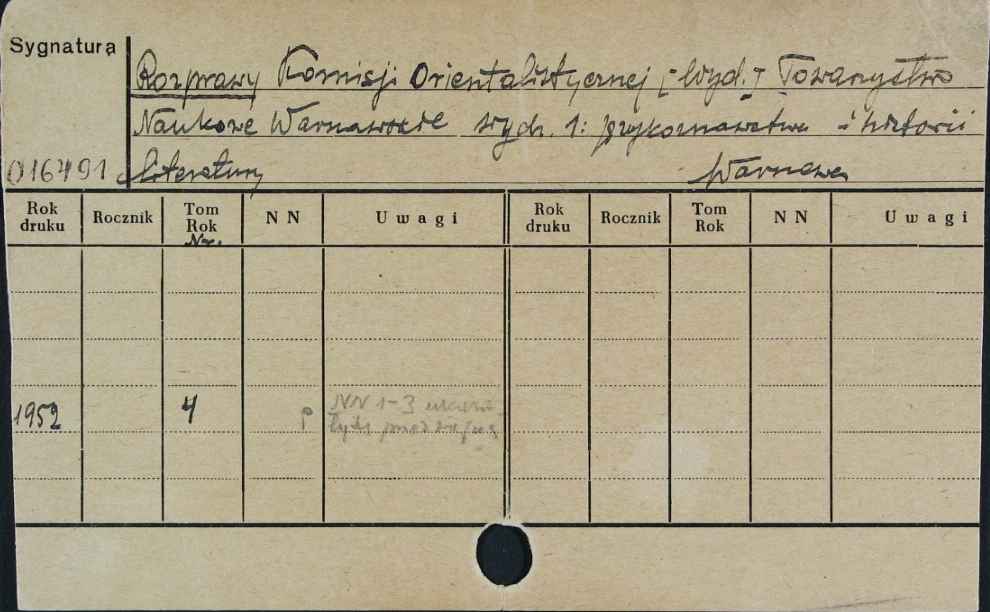 Sygnatura
Rozprawy Komisji Orientalistycznej [Wyd.] Towarzystwo
Naukowe Warszawskie Wydz. 1: Językoznawstwa i historii
016491 literatury Warszawa
Rok druku Rocznik Tom Rok Nr. NN Uwagi Rok druku Rocznik Tom Rok NN Uwagi
NN 1-3
1952 4 P